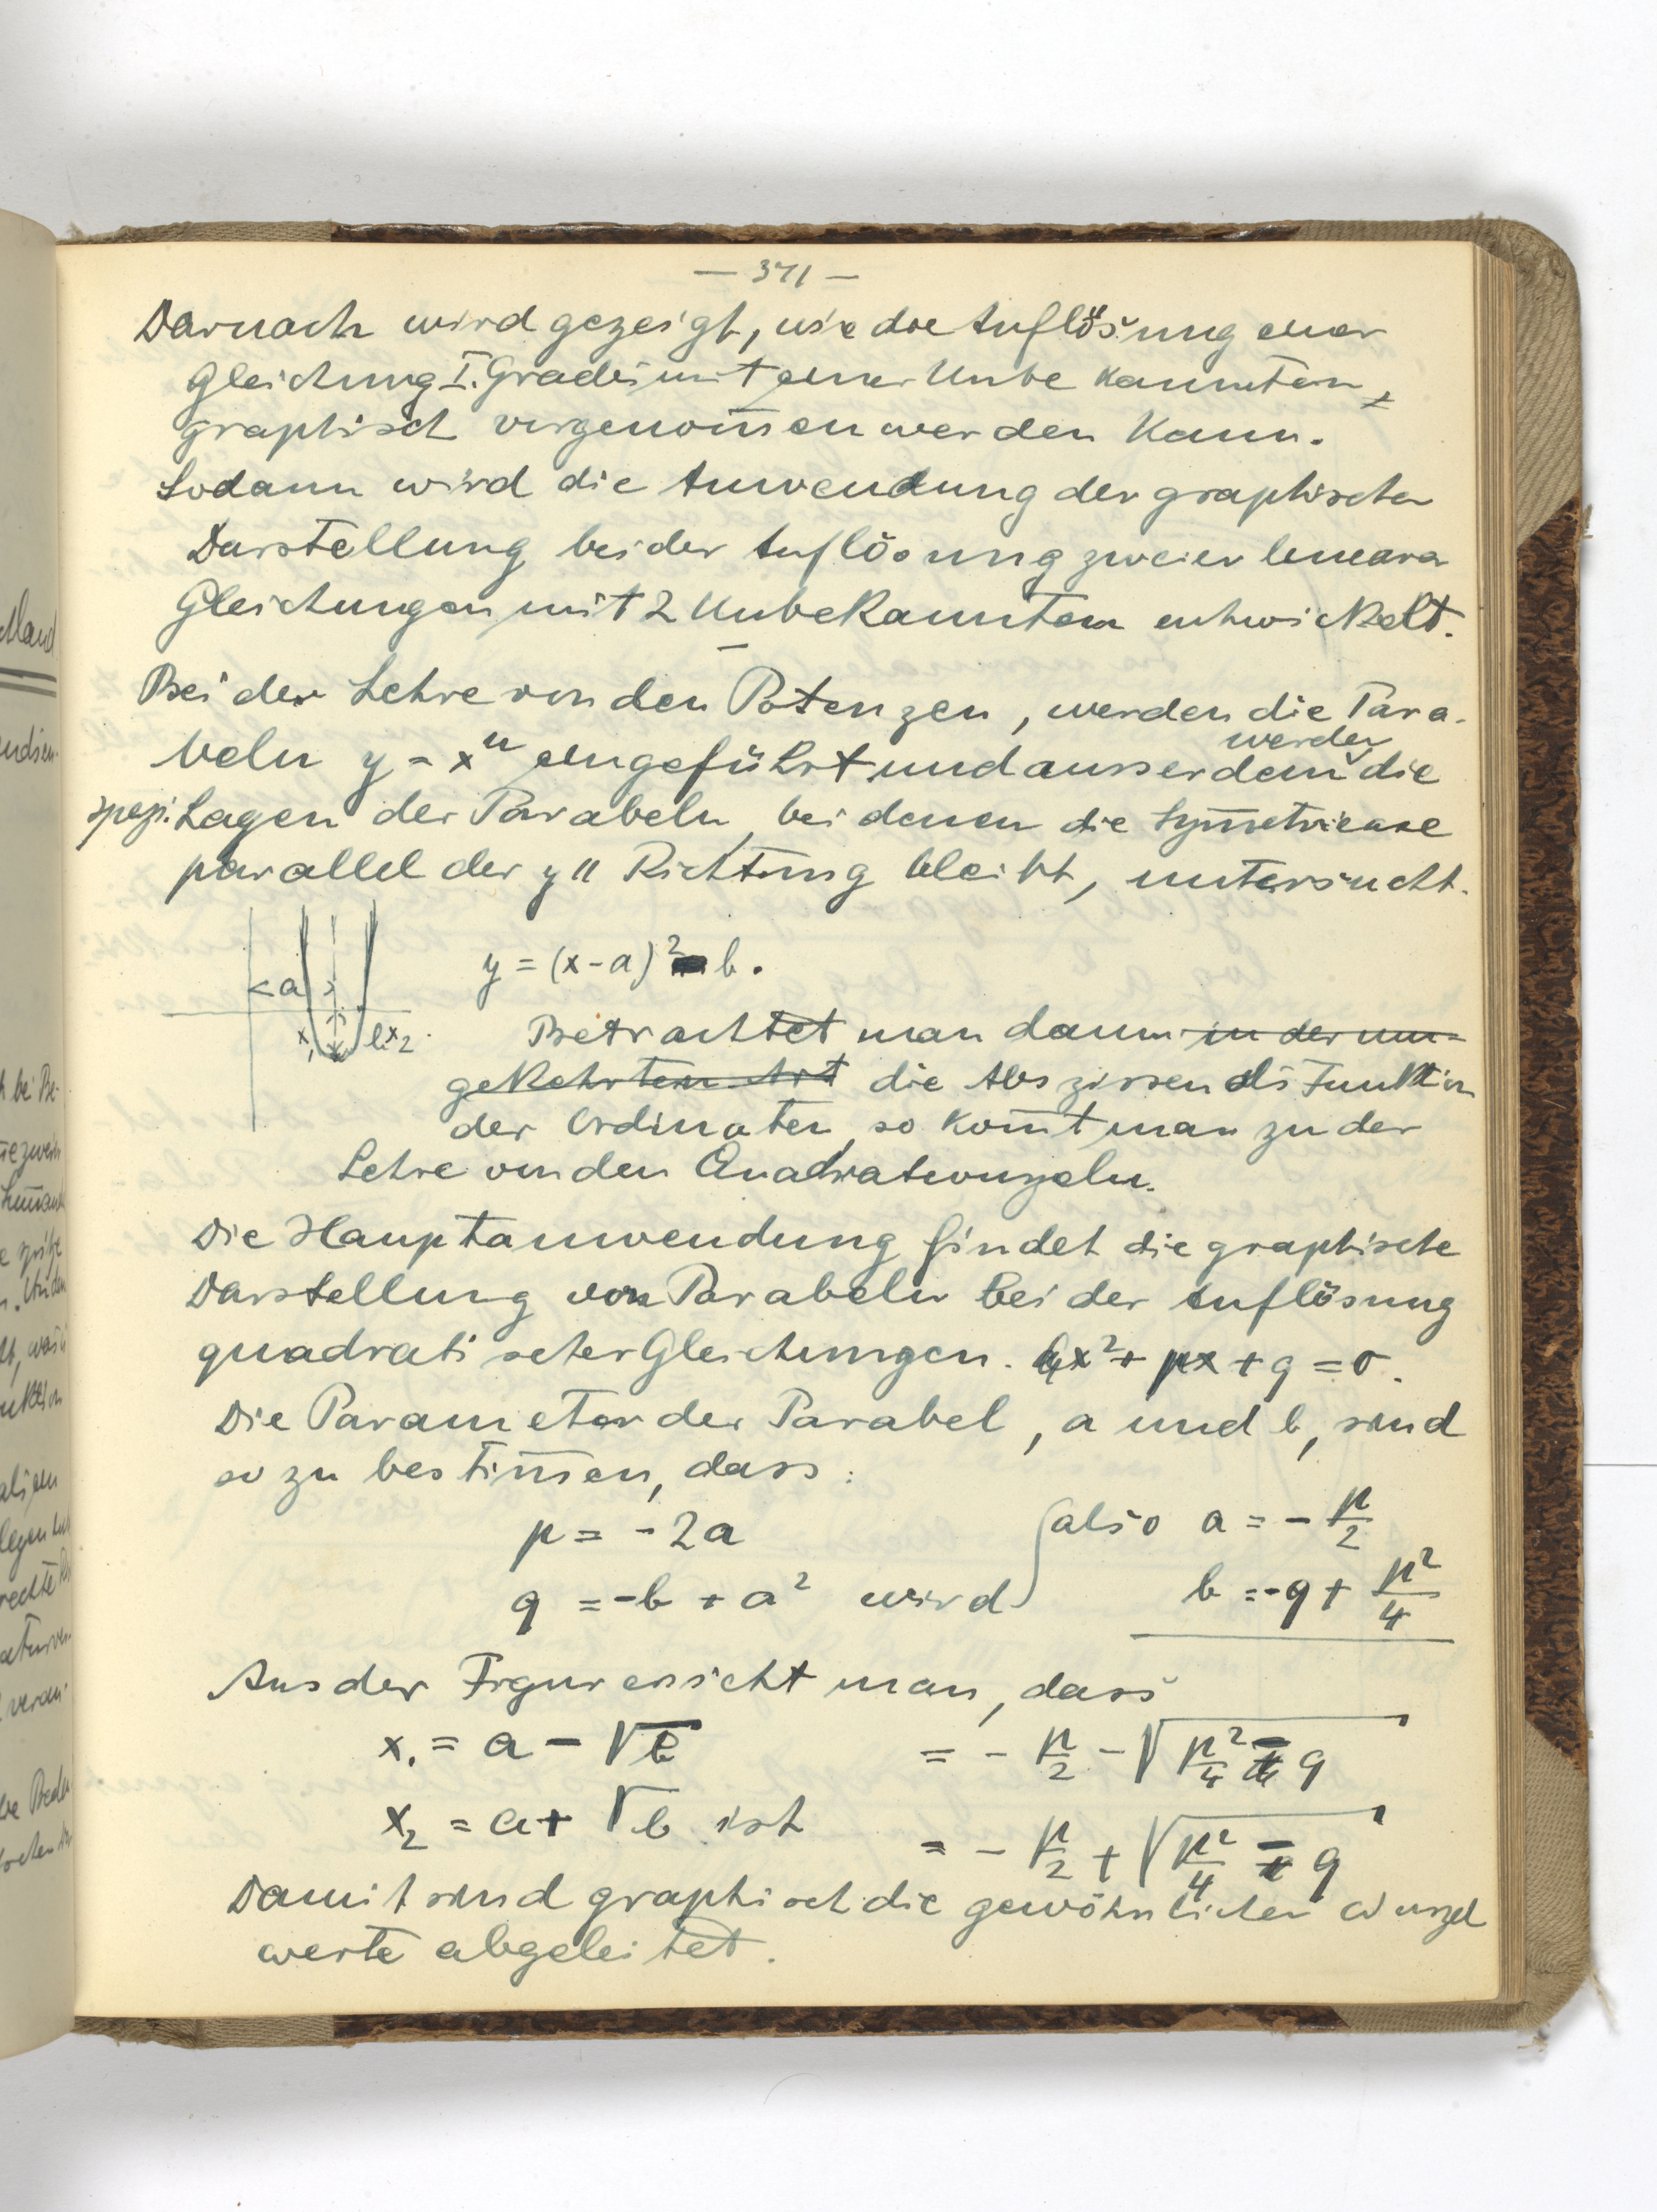 — 371 —
Darnach wird gezeigt, wie die Auflösung einer
Gleichung I. Grades mit einer Unbekannten,
graphisch vorgenom̅en werden kann.
Sodann wird die Anwendung der graphischen
Darstellung bei der Auflösung zweier linearer
Gleichungen mit 2 Unbekannten entwickelt.
Bei der Lehre von den Potenzen, werden die Para-
beln y = xⁿ eingeführt und ausserdem werden die
spezi. Lagen der Parabeln, bei denen die Sym̅etrieaxe
parallel der y" Richtung bleibt, untersucht.
a
x₁ b x₂
y = (x - a)² - b.
Betrachtet man dann in der um-
gekehrten Art die Abszissen als Funktion
der Ordinaten, so kom̅t man zu der
Lehre von den Quadratwurzeln.
Die Hauptanwendung findet die graphische
Darstellung von Parabeln bei der Auflösung
quadratischer Gleichungen. x² + px + q = 0.
Die Parameter der Parabel, a und b, sind
so zu bestim̅en, dass:
p = - 2a also a = - p/2
q = - b + a² wird b = - q + p²/4
Aus der Figur ersieht man, dass
x₁ = a - √b = - p/2 - √(p²/4 - q)
x₂ = a + √b ist = - p/2 + √(p²/4 - q)
Damit sind graphisch die gewöhnlichen Wurzel
werte abgeleitet.